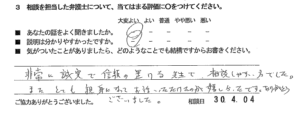 3 相談を担当した弁護士について、当てはまる評価に○をつけてください。
大変よい よい 普通 やや悪い 悪い
■ あなたの話をよく聞きましたか。
■ 説明は分かりやすかったですか。
■ 気がついたことがありましたら、どのようなことでも結構ですからお書きください。
非常に誠実で信頼の置ける方で相談しやすい方でした。
また とても 親身になって 嬉しかったです。ありがとう
ございました。
ご協力ありがとうございました。 相談日 30.4.04